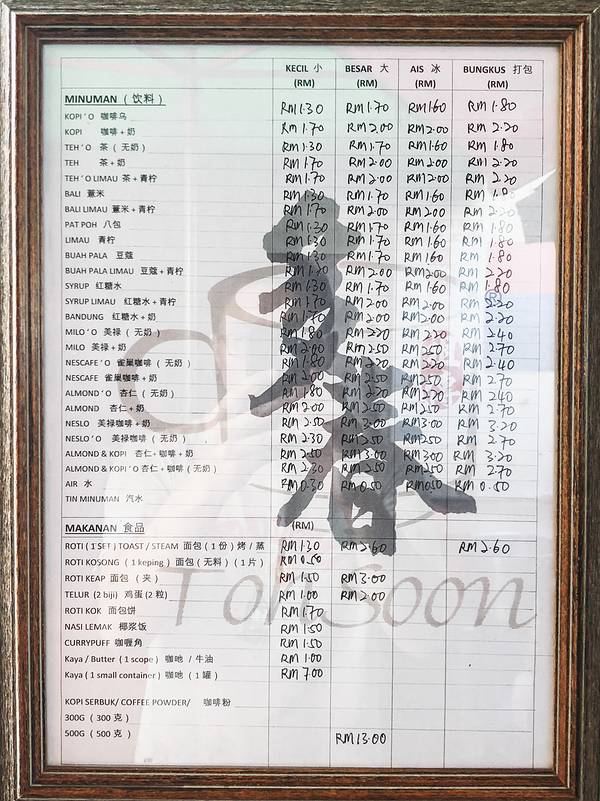 KECIL 小 BESAR 大 AIS 冰 BUNGKUS 打包
(RM) (RM) (RM) (RM)
MINUMAN ( 饮料 )
KOPI ' O 咖啡乌 RM 1.30 RM 1.70 RM 1.60 RM 1.80
KOPI 咖啡 + 奶 RM 1.70 RM 2.00 RM 2.00 RM 2.20
TEH ' O 茶 ( 无奶 ) RM 1.30 RM 1.70 RM 1.60 RM 1.80
TEH 茶 + 奶 RM 1.70 RM 2.00 RM 2.00 RM 2.20
TEH ' O LIMAU 茶 + 青柠 RM 1.70 RM 2.00 RM 2.00 RM 2.20
BALI 薏米 RM 1.30 RM 1.70 RM 1.60 RM 1.80
BALI LIMAU 薏米 + 青柠 RM 1.70 RM 2.00 RM 2.00 RM 2.20
PAT POH 八包 RM 1.30 RM 1.70 RM 1.60 RM 1.80
LIMAU 青柠 RM 1.30 RM 1.70 RM 1.60 RM 1.80
BUAH PALA 豆蔻 RM 1.30 RM 1.70 RM 1.60 RM 1.80
BUAH PALA LIMAU 豆蔻 + 青柠 RM 1.70 RM 2.00 RM 2.00 RM 2.20
SYRUP 红糖水 RM 1.30 RM 1.70 RM 1.60 RM 1.80
SYRUP LIMAU 红糖水 + 青柠 RM 1.70 RM 2.00 RM 2.00 RM 2.20
BANDUNG 红糖水 + 奶 RM 1.70 RM 2.00 RM 2.00 RM 2.20
MILO ' O 美禄 ( 无奶 ) RM 1.80 RM 2.20 RM 2.20 RM 2.40
MILO 美禄 + 奶 RM 2.00 RM 2.50 RM 2.50 RM 2.70
NESCAFE ' O 雀巢咖啡 ( 无奶 ) RM 1.80 RM 2.20 RM 2.20 RM 2.40
NESCAFE 雀巢咖啡 + 奶 RM 2.00 RM 2.50 RM 2.50 RM 2.70
ALMOND ' O 杏仁 ( 无奶 ) RM 1.80 RM 2.20 RM 2.20 RM 2.40
ALMOND 杏仁 + 奶 RM 2.00 RM 2.50 RM 2.50 RM 2.70
NESLO 美禄咖啡 + 奶 RM 2.50 RM 3.00 RM 3.00 RM 3.20
NESLO ' O 美禄咖啡 ( 无奶 ) RM 2.30 RM 2.50 RM 2.50 RM 2.70
ALMOND & KOPI 杏仁 + 咖啡 + 奶 RM 2.50 RM 3.00 RM 3.00 RM 3.20
ALMOND & KOPI ' O 杏仁 + 咖啡 ( 无奶 ) RM 2.30 RM 2.50 RM 2.50 RM 2.70
AIR 水 RM 0.30 RM 0.50 RM 0.50 RM 0.50
TIN MINUMAN 汽水
MAKANAN 食品 (RM)
ROTI ( 1 SET ) TOAST / STEAM 面包 ( 1 份 ) 烤 / 蒸 RM 1.30 RM 2.60 RM 2.60
ROTI KOSONG ( 1 keping ) 面包 ( 无料 ) ( 1 片 ) RM 0.50
ROTI KEAP 面包 ( 夹 ) RM 1.50 RM 3.00
TELUR (2 biji) 鸡蛋 (2 粒) RM 1.00 RM 2.00
ROTI KOK 面包饼 RM 1.70
NASI LEMAK 椰浆饭 RM 1.50
CURRYPUFF 咖喱角 RM 1.50
Kaya / Butter ( 1 scope ) 咖吔 / 牛油 RM 1.00
Kaya ( 1 small container ) 咖吔 ( 1 罐 ) RM 7.00
KOPI SERBUK/ COFFEE POWDER/ 咖啡粉
300G ( 300 克 )
500G ( 500 克 ) RM 13.00
Toh Soon